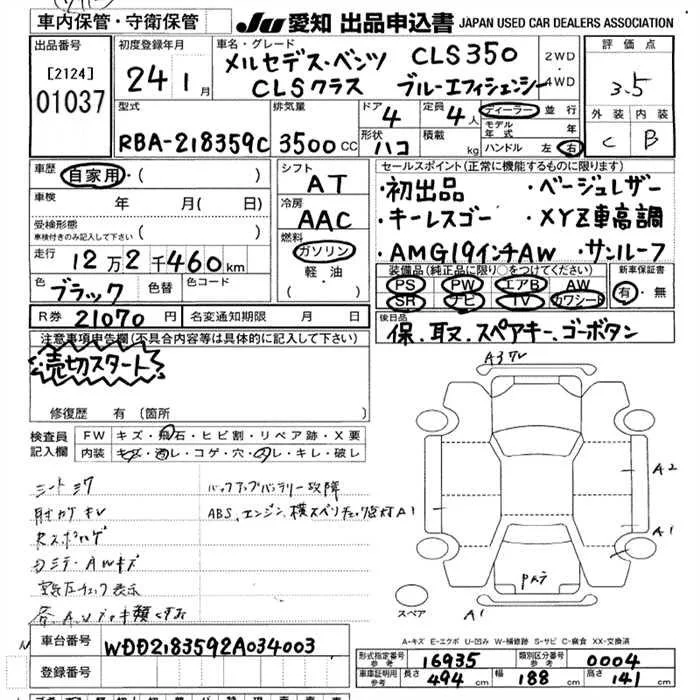 車内保管・守衛保管
Ju 愛知 出品申込書 JAPAN USED CAR DEALERS ASSOCIATION
出品番号
[2124]
01037
初度登録年月
24年1月
車名・グレード
メルセデス・ベンツ CLS350
CLSクラス ブルーエフィシェンシー
2WD
・
4WD
評価点
3.5
外装 内装
C B
型式
RBA-218359C
排気量
3500cc
ドア
4
定員
4人
形状
ハコ
積載
kg
ディーラー 並行
モデル年式 年
ハンドル 左 右
車歴
自家用・( )
車検 年 月( 日)
受検形態
車検付きのみ記入して下さい ( )
走行 12万2千460km
色 ブラック 色替 色コード
R券 21070円 名変通知期限 月 日
シフト
AT
冷房
AAC
燃料
ガソリン
軽・油
( )
セールスポイント(正常に機能するものに限ります)
・初出品 ・ベージュレザー
・キーレスゴー ・XYZ車高調
・AMG19インチAW ・サンルーフ
装備品(純正品に限り○をつけてください)
PS PW エアB AW
SR ナビ TV カワシート
新車保証書
有・無
後日品
保、取、スペアキー、ゴーボタン
注意事項申告欄(不具合内容等は具体的に記入して下さい)
売切スタート
修復歴 有(箇所 )
検査員
記入欄
FW キズ・飛石・ヒビ割・リペア跡・X要
内装 キズ・汚レ・コゲ・穴・スレ・キレ・破レ
バックアップバッテリー故障
ABS、エンジン、横スベリチェック
シートシワ
A1
A2
A1
A1
スペア
A-キズ E-エクボ U-凹み W-補修跡 S-サビ C-腐食 XX-交換済
車台番号 WDD2183592A034003
登録番号
形式指定番号 参考 16935 類別区分番号 参考 0004
車庫証明用 参考 長さ 494cm 幅 188cm 高さ 141cm